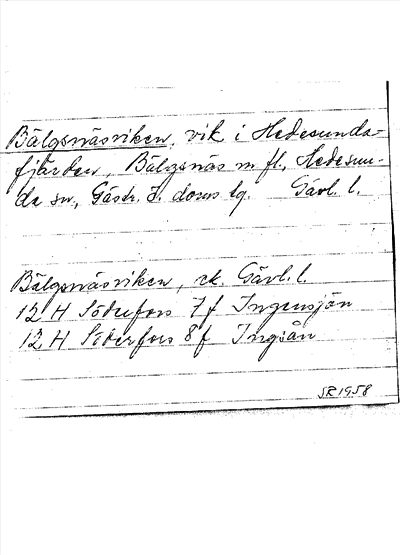 Bälgsnäsviken, vik i Hedesunda-
fjärden, Bälgsnäs m fl., Hedesun-
da sn, Gästr. ö. doms lg. Gävl. l.
Bälgsnäsviken, ek. Gävl. l.
12 H Söderfors 7 f Ingensjön
12 H Söderfors 8 f Ingsån
SR 1958